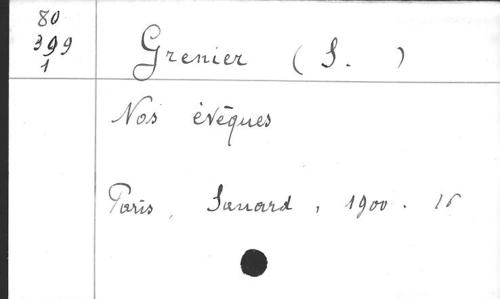 80
399
1
Grenier (S. )
Nos évêques
Paris, Sanard, 1900. 16